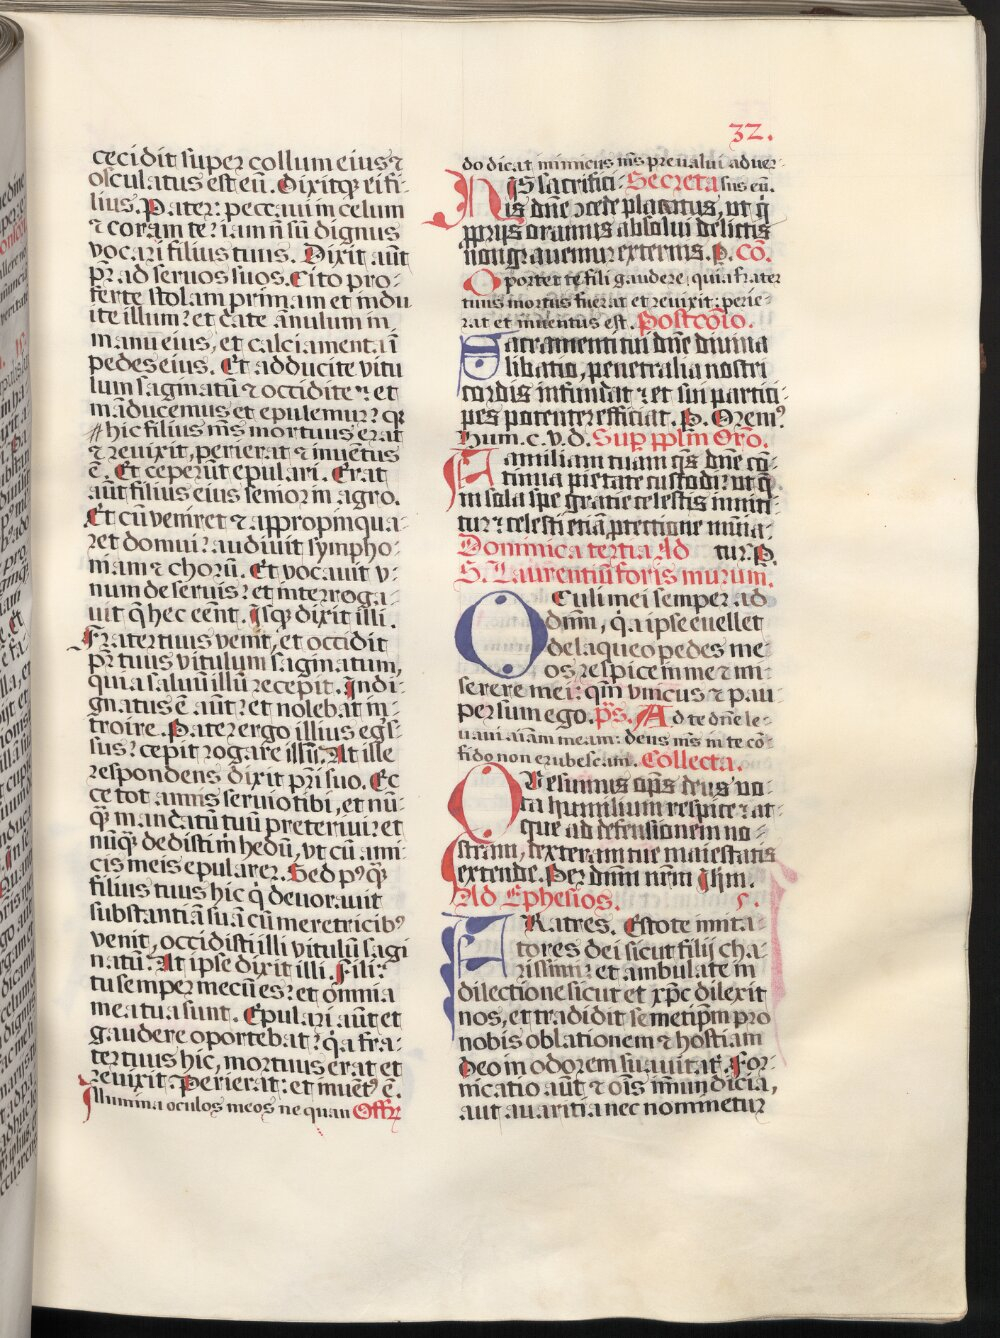 32.
cecidit super collum eius ⁊
osculatus est eū. Dixitq̧ ei fi-
lius. Pater: peccaui in celum
⁊ coram te: iam nō sū dignus
vocari filius tuus. Dixit aūt
pr̄ ad seruos suos. Cito pro-
ferte stolam primam et indu
ite illum: et date ānulum in
manu eius, et calciamenta ī
pedes eius. Et adducite vitu
lum saginatū ⁊ occidite: et
māducemus et epulemur: qȝ
hic filius mēs mortuus erat
⁊ reuixit, perierat ⁊ inuētus
ē. Et ceperūt epulari. Erat
aūt filius eius senior in agro.
Et cū veniret ⁊ appropinqua-
ret domui: audiuit sympho-
niam ⁊ chorū. Et vocauit v-
num de seruis: et interroga-
uit q̄ hec eēnt. Isq̧ dixit illi.
Frater tuus venit, et occidit
pr̄ tuus vitulum saginatum,
quia saluū illū recepit. Indi-
gnatus ē aūt: et nolebat in-
troire. Pater ergo illius egr̄s-
sus: cepit rogare illū. At ille
respondens dixit pr̄i suo. Ec
ce tot annis seruio tibi, et nū-
q̄ mandatū tuū preteriui: et
nūq̄ dedisti m̄ hedū, vt cū ami-
cis meis epularer. Sed pꝰq̄
filius tuus hic q̇ deuorauit
substantiā suā cū meretricibꝰ
venit, occidisti illi vitulū sagi
natū. At ipse dixit illi. Fili:
tu semper mecū es: et omnia
mea tua sunt. Epulari aūt et
gaudere oportebat: q̇a fra-
ter tuus hic, mortuus erat et
reuixit. Perierat: et inuētꝰ ē.
Illumina oculos meos ne quan Offꝝ
do dicat inimicus mēs preualui aduer-
Is sacrifici- Secreta sus eū.
is dn̄e ↄcede placatus, ut q̇
ꝓprijs oramus absolui delictis
non grauemur externis. P. Cō.
Oportet te fili gaudere, quia frater
tuus mortus fuerat et reuixit: perie-
rat et inuentus est. Postcōīo.
Sacramenti tui dn̄e diuina
libatio, penetralia nostri
cordis infundat: et sui partici-
pes potenter efficiat. P. Oremꝰ
Hum. c. v. d. Sup pplm̄ Orō.
Familiam tuam q̄s dn̄e cō-
tinua pietate custodi: ut q̄
in sola spe gratie celestis inniti-
tur: celesti etiā ꝓtectione munia-
Dominica tertia Ad tur. P.
S. Laurentiū foris murum.
Oculi mei semper ad
dn̄m, q̇a ipse euellet
de laqueo pedes me
os, respice in me ⁊ mi-
serere mei: qm̄ vnicus ⁊ pau
per sum ego. p̄s. Ad te dn̄e le-
uaui aīam meam: deus mēs in te cō-
fido non erubescam. Collecta.
Quesumus oп̄s deus uo-
ta humilium respice: at-
que ad defensionem no-
stram, dexteram tue maiestatis
extende. Per dn̄m nr̄m Ihm.
Ad Ephesios. 5.
FRatres. Estote imita-
tores dei sicut filij cha-
rissimi: et ambulate in
dilectione sicut et xp̄c dilexit
nos, et tradidit semetip̄m pro
nobis oblationem ⁊ hostiam
deo in odorem suauitaf. For-
nicatio aūt ⁊ oīs īmundicia,
aut auaritia nec nominetur